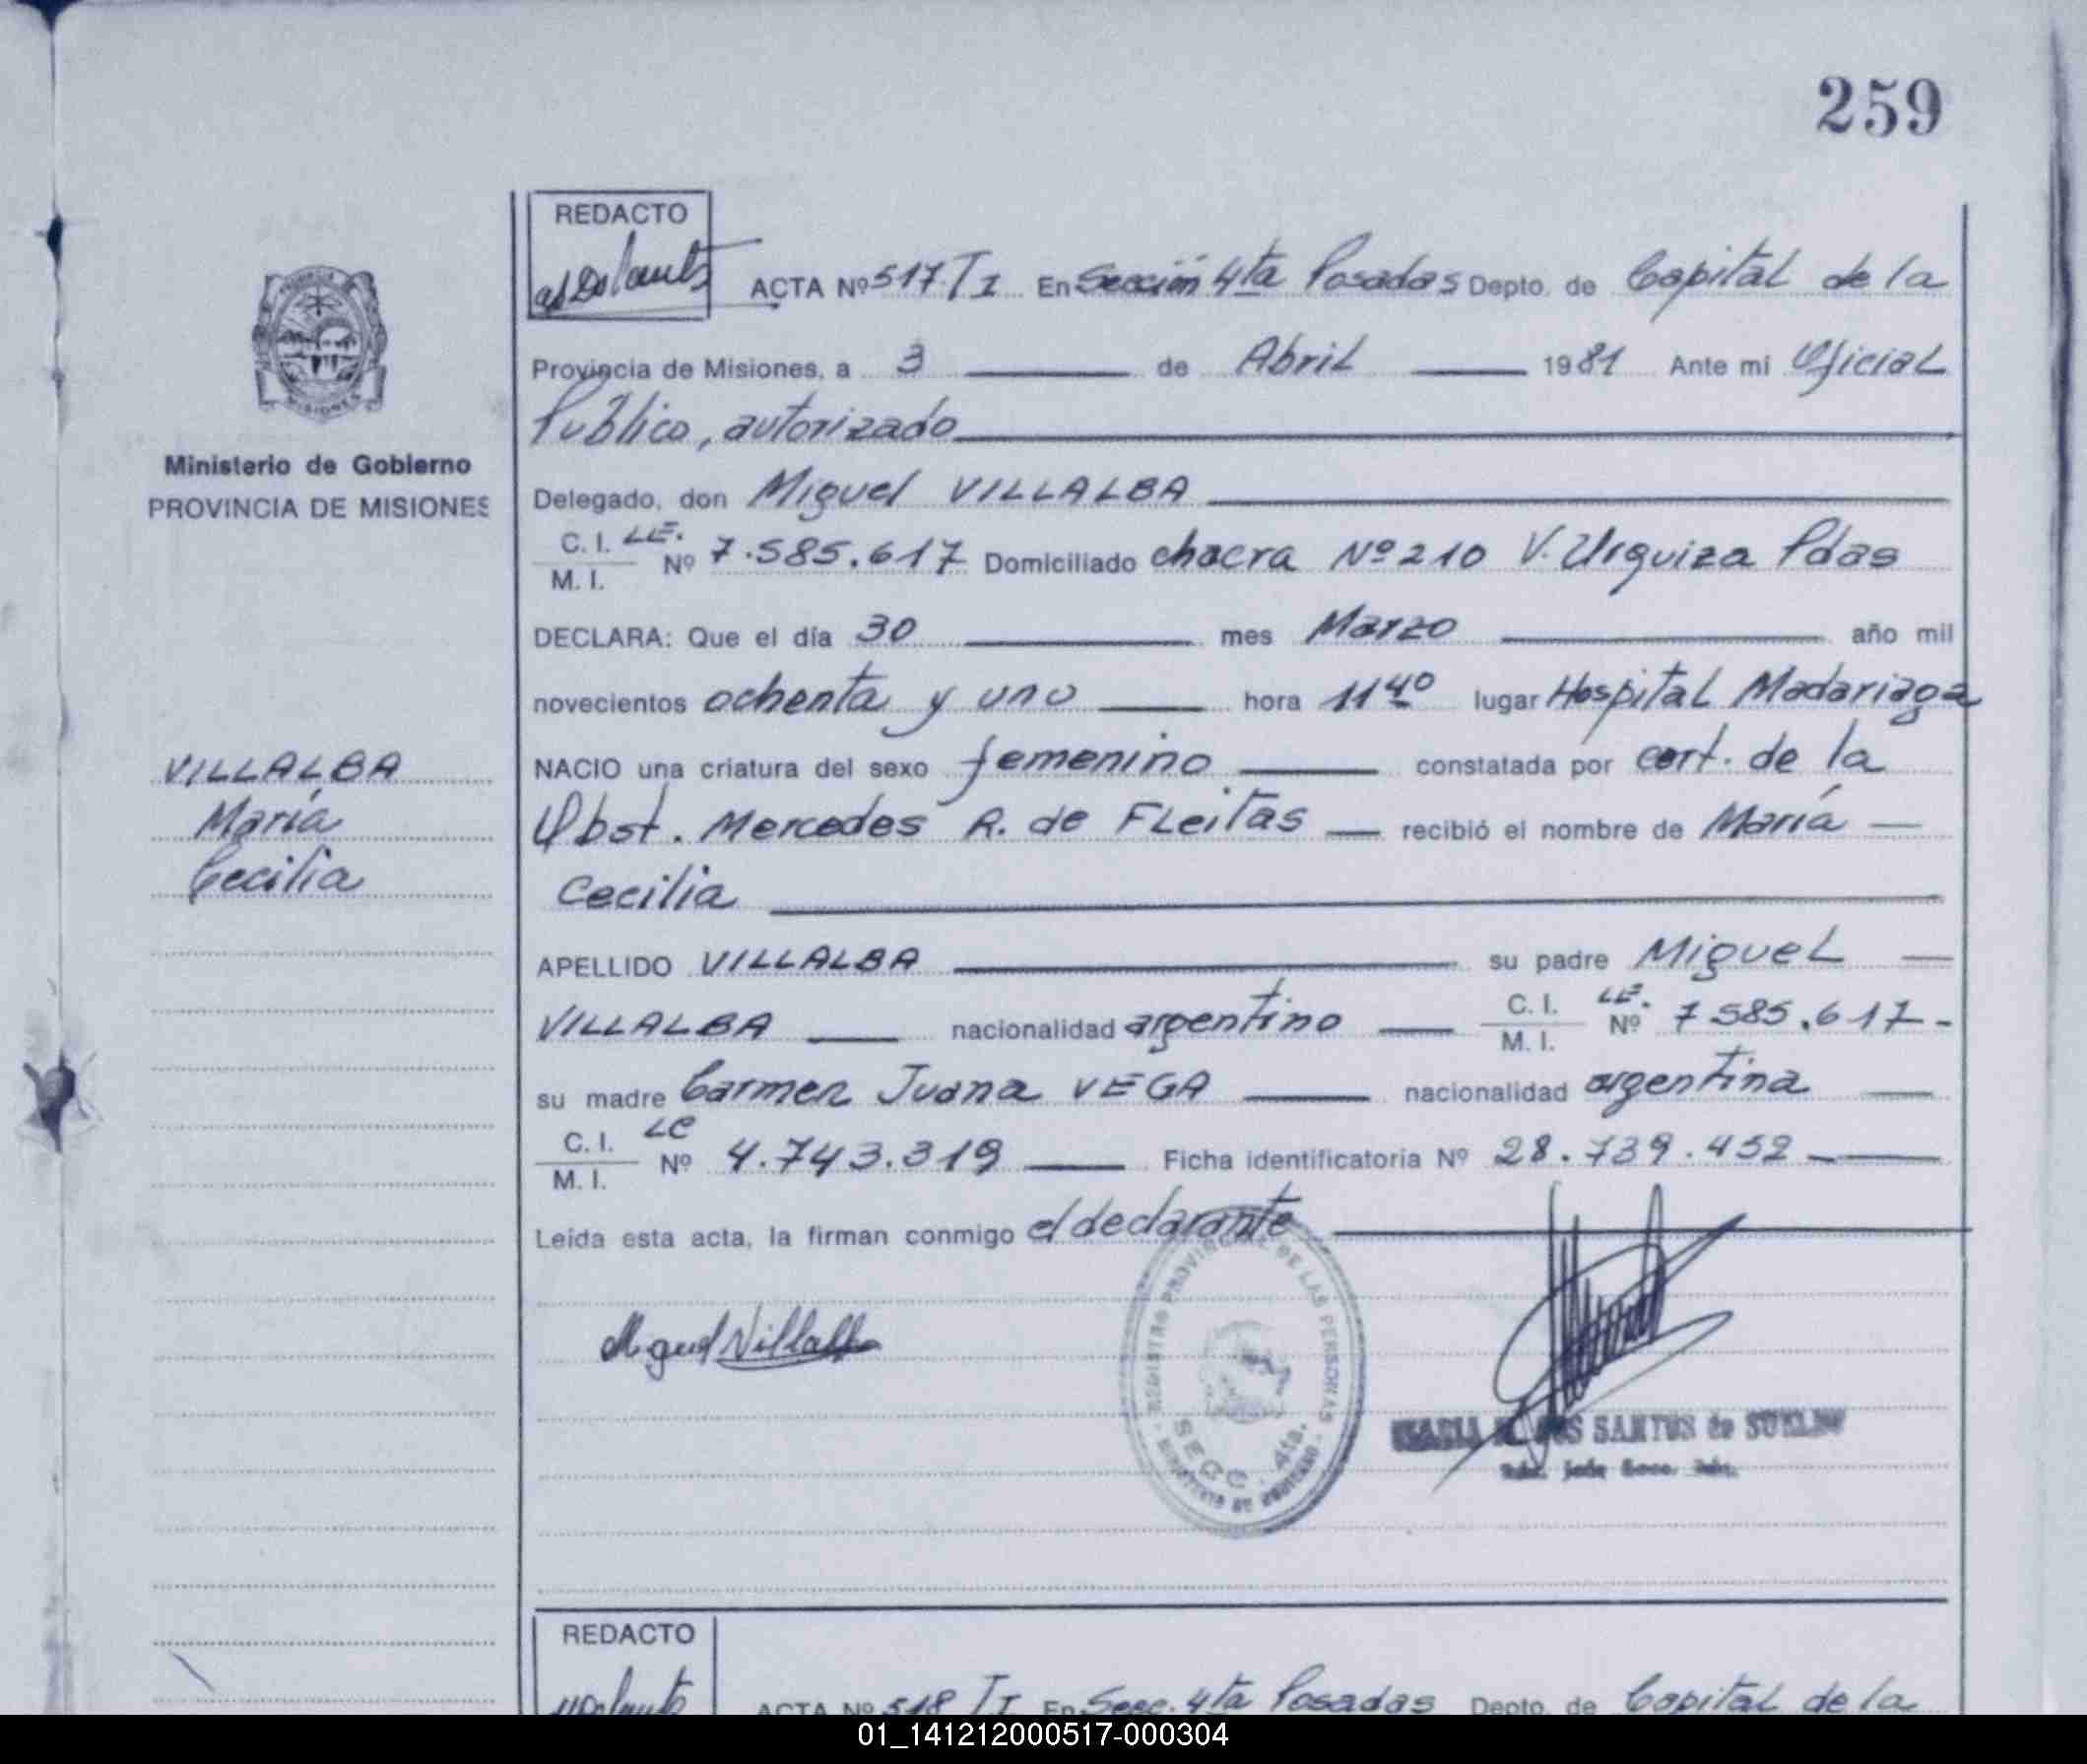 259
REDACTO
ACTA Nº 517 T I En Sección 4ta Posadas Depto. de Capital de la
Provincia de Misiones, a 3 de Abril 1981 Ante mi Oficial
Público, autorizado
Ministerio de Gobierno
PROVINCIA DE MISIONES
Delegado, don Miguel VILLALBA
C. I. M. I. LE. Nº 7.585.617 Domiciliado chacra Nº 210 V. Urquiza Pdas
DECLARA: Que el día 30 mes Marzo año mil
novecientos ochenta y uno hora 11 40 lugar Hospital Madariaga
VILLALBA
María
Cecilia
NACIO una criatura del sexo femenino constatada por cert. de la
Obst. Mercedes R. de FLeitas recibió el nombre de María
Cecilia
APELLIDO VILLALBA su padre Miguel
VILLALBA nacionalidad argentino C. I. M. I. LE. Nº 7 585.617-
su madre Carmen Juana VEGA nacionalidad argentina
C. I. M. I. LC Nº 4.743.319 Ficha identificatoria Nº 28.739.452
Leída esta acta, la firman conmigo el declarante
Miguel Villalba
REGISTRO PROVINCIAL DE LAS PERSONAS
SECC. 4ta.
SANTOS de
REDACTO
ACTA Nº 518 T I En Secc. 4ta Posadas Depto. de Capital de la
01_141212000517-000304